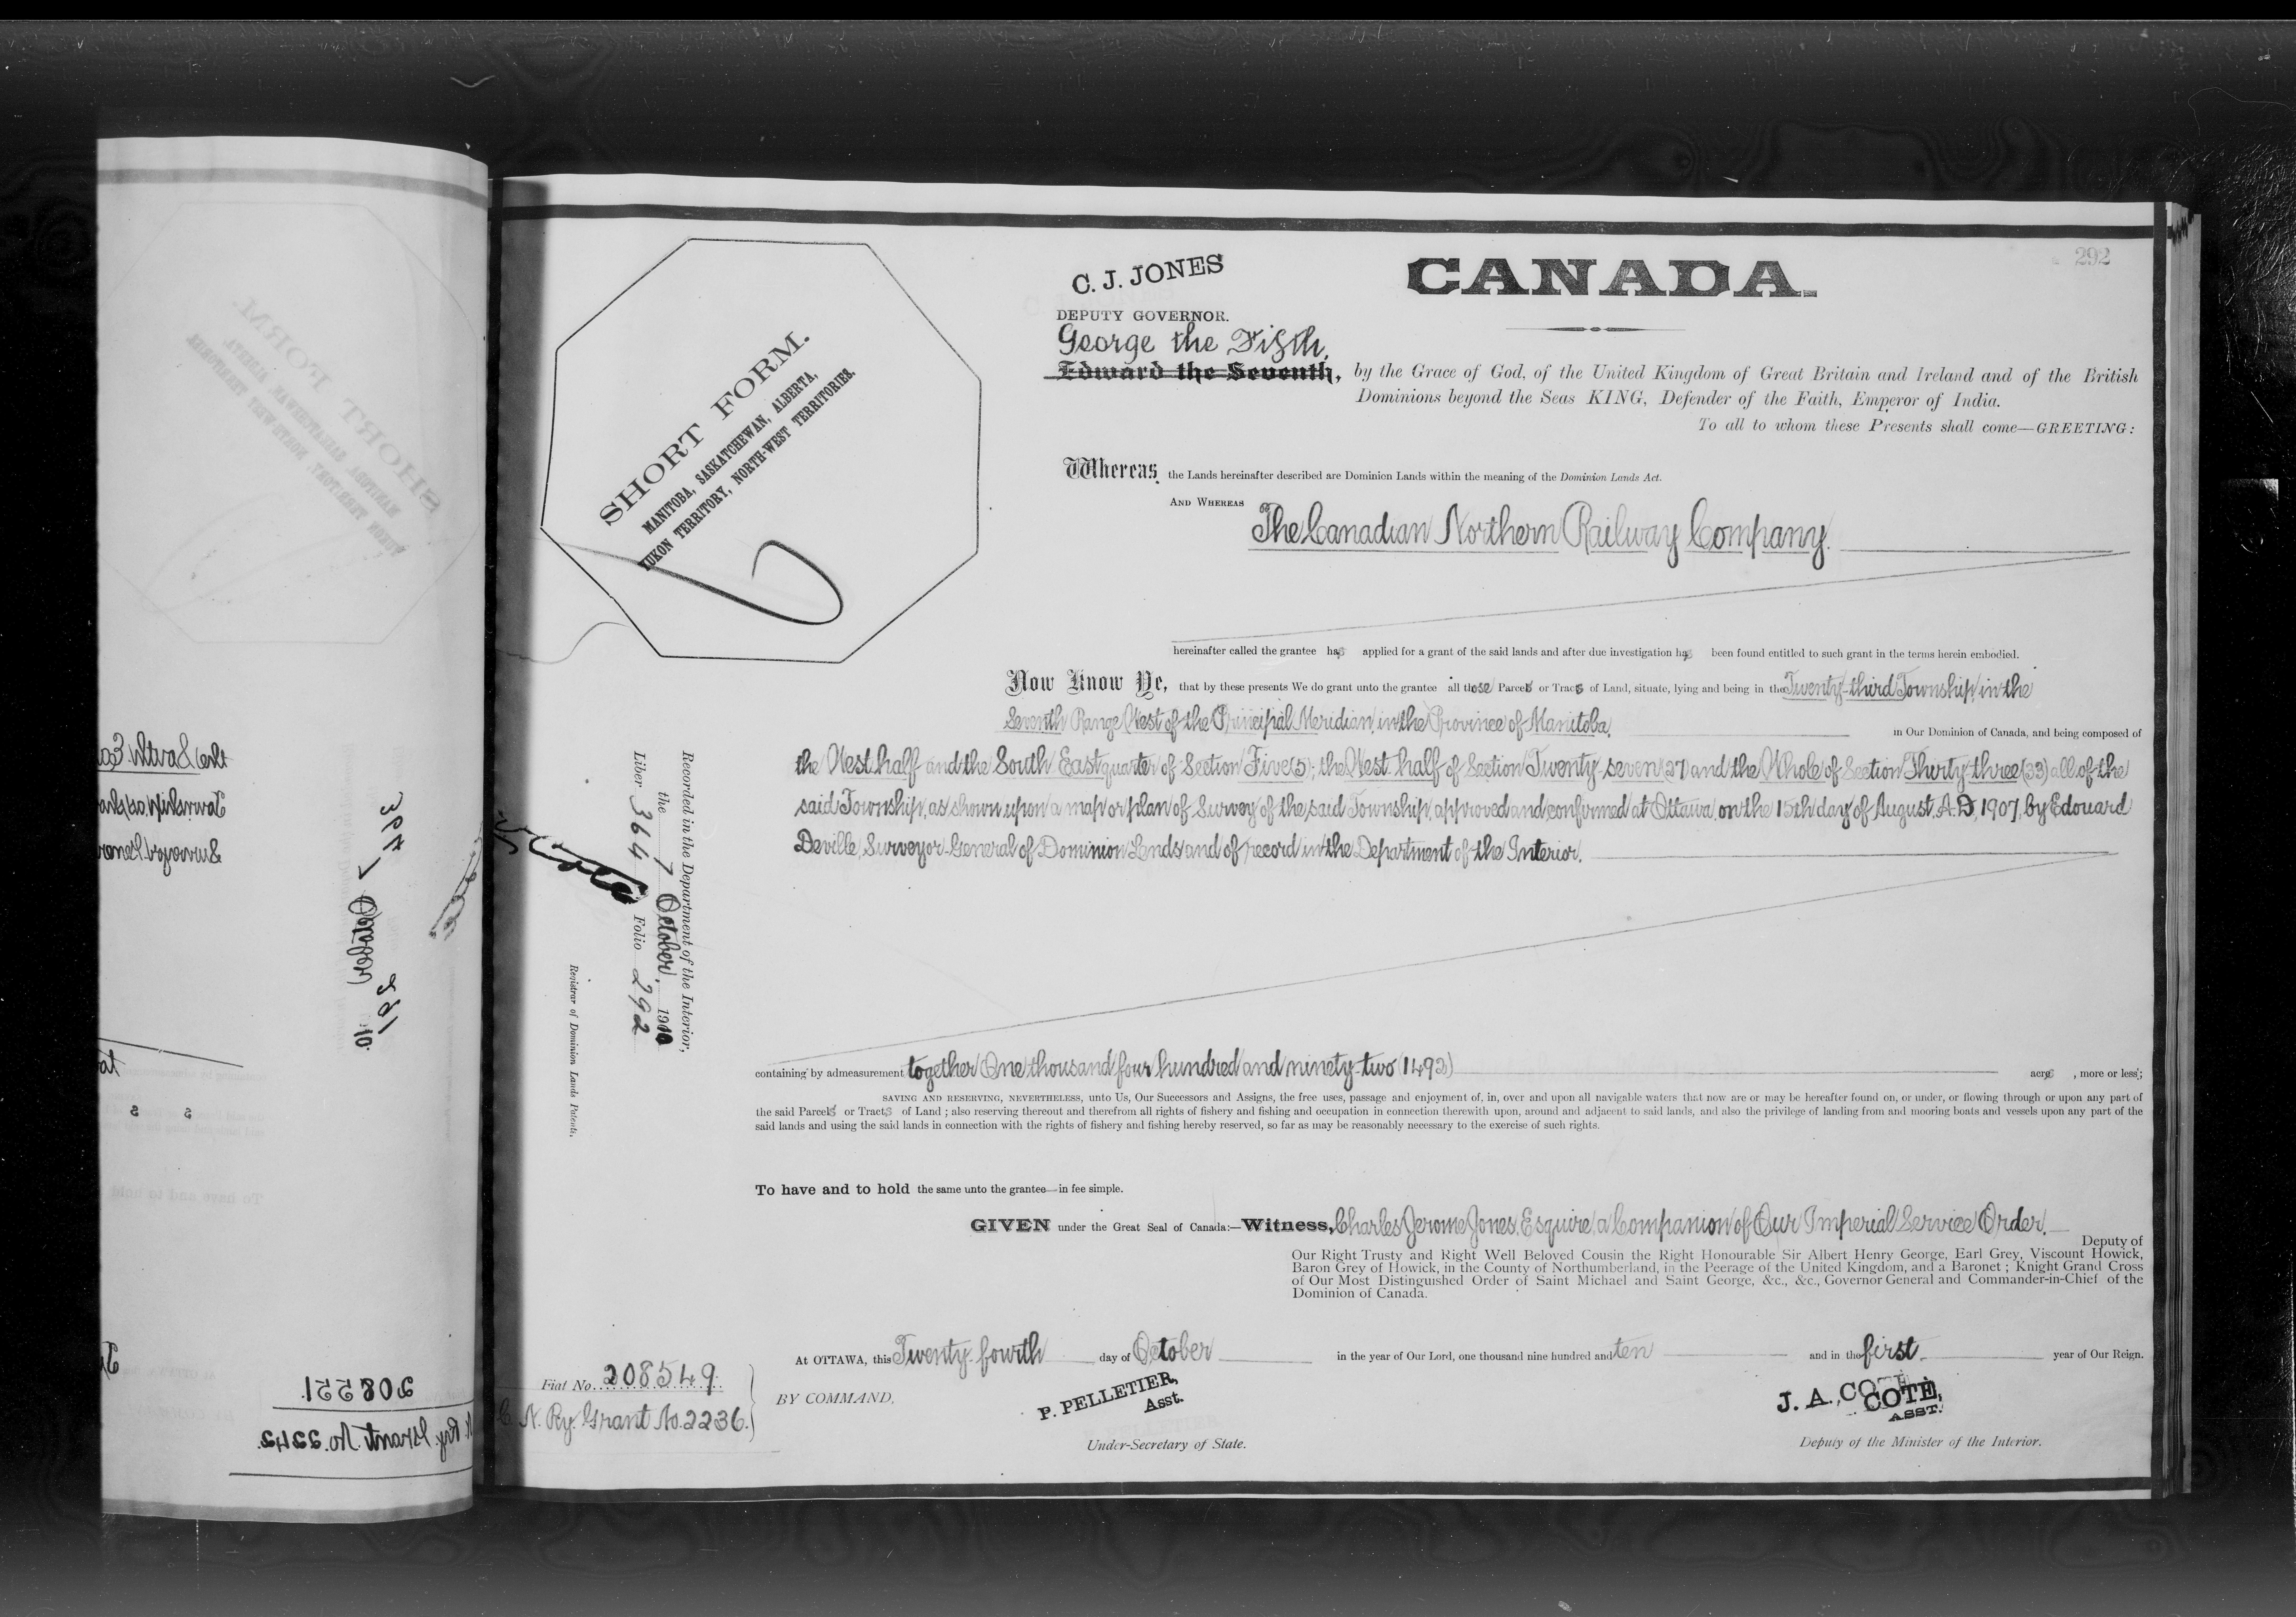 292
C. J. JONES
CANADA.
DEPUTY GOVERNOR.
George the Fifth,
Edward the Seventh, by the Grace of God, of the United Kingdom of Great Britain and Ireland and of the British
Dominions beyond the Seas KING, Defender of the Faith, Emperor of India.
To all to whom these Presents shall come—GREETING:
SHORT FORM.
MANITOBA, SASKATCHEWAN, ALBERTA,
YUKON TERRITORY, NORTH-WEST TERRITORIES.
Whereas the Lands hereinafter described are Dominion Lands within the meaning of the Dominion Lands Act.
AND WHEREAS
The Canadian Northern Railway Company.
hereinafter called the grantee has applied for a grant of the said lands and after due investigation has been found entitled to such grant in the terms herein embodied.
Now Know Ye, that by these presents We do grant unto the grantee all those Parcels or Tracts of Land, situate, lying and being in the Twenty-third Township, in the
Seventh Range West of the Principal Meridian, in the Province of Manitoba,
in Our Dominion of Canada, and being composed of
the West half and the South East quarter of Section Five (5); the West half of Section Twenty-seven (27) and the Whole of Section Thirty-three (33) all of the
said Township, as shown upon a map or plan of Survey of the said Township, approved and confirmed at Ottawa, on the 15th day of August, A.D. 1907, by Edouard
Deville, Surveyor-General of Dominion Lands and of record in the Department of the Interior.
Recorded in the Department of the Interior,
the 7 October, 1910
Liber 364 Folio 292
Registrar of Dominion Lands Patents.
containing by admeasurement together One thousand four hundred and ninety-two (1492) acres, more or less;
SAVING AND RESERVING, NEVERTHELESS, unto Us, Our Successors and Assigns, the free uses, passage and enjoyment of, in, over and upon all navigable waters that now are or may be hereafter found on, or under, or flowing through or upon any part of
the said Parcels or Tracts of Land ; also reserving thereout and therefrom all rights of fishery and fishing and occupation in connection therewith upon, around and adjacent to said lands, and also the privilege of landing from and mooring boats and vessels upon any part of the
said lands and using the said lands in connection with the rights of fishery and fishing hereby reserved, so far as may be reasonably necessary to the exercise of such rights.
To have and to hold the same unto the grantee in fee simple.
GIVEN under the Great Seal of Canada:—Witness, Charles Jerome Jones, Esquire, a Companion of Our Imperial Service Order,
Deputy of
Our Right Trusty and Right Well Beloved Cousin the Right Honourable Sir Albert Henry George, Earl Grey, Viscount Howick,
Baron Grey of Howick, in the County of Northumberland, in the Peerage of the United Kingdom, and a Baronet ; Knight Grand Cross
of Our Most Distinguished Order of Saint Michael and Saint George, &c., &c., Governor General and Commander-in-Chief of the
Dominion of Canada.
At OTTAWA, this Twenty-fourth day of October in the year of Our Lord, one thousand nine hundred and ten and in the first year of Our Reign.
Fiat No. 208549.
C. N. Ry. Grant No. 2236.
BY COMMAND,
P. PELLETIER,
Asst.
Under-Secretary of State.
J. A. COTÉ,
COTÉ,
ASST.
Deputy of the Minister of the Interior.